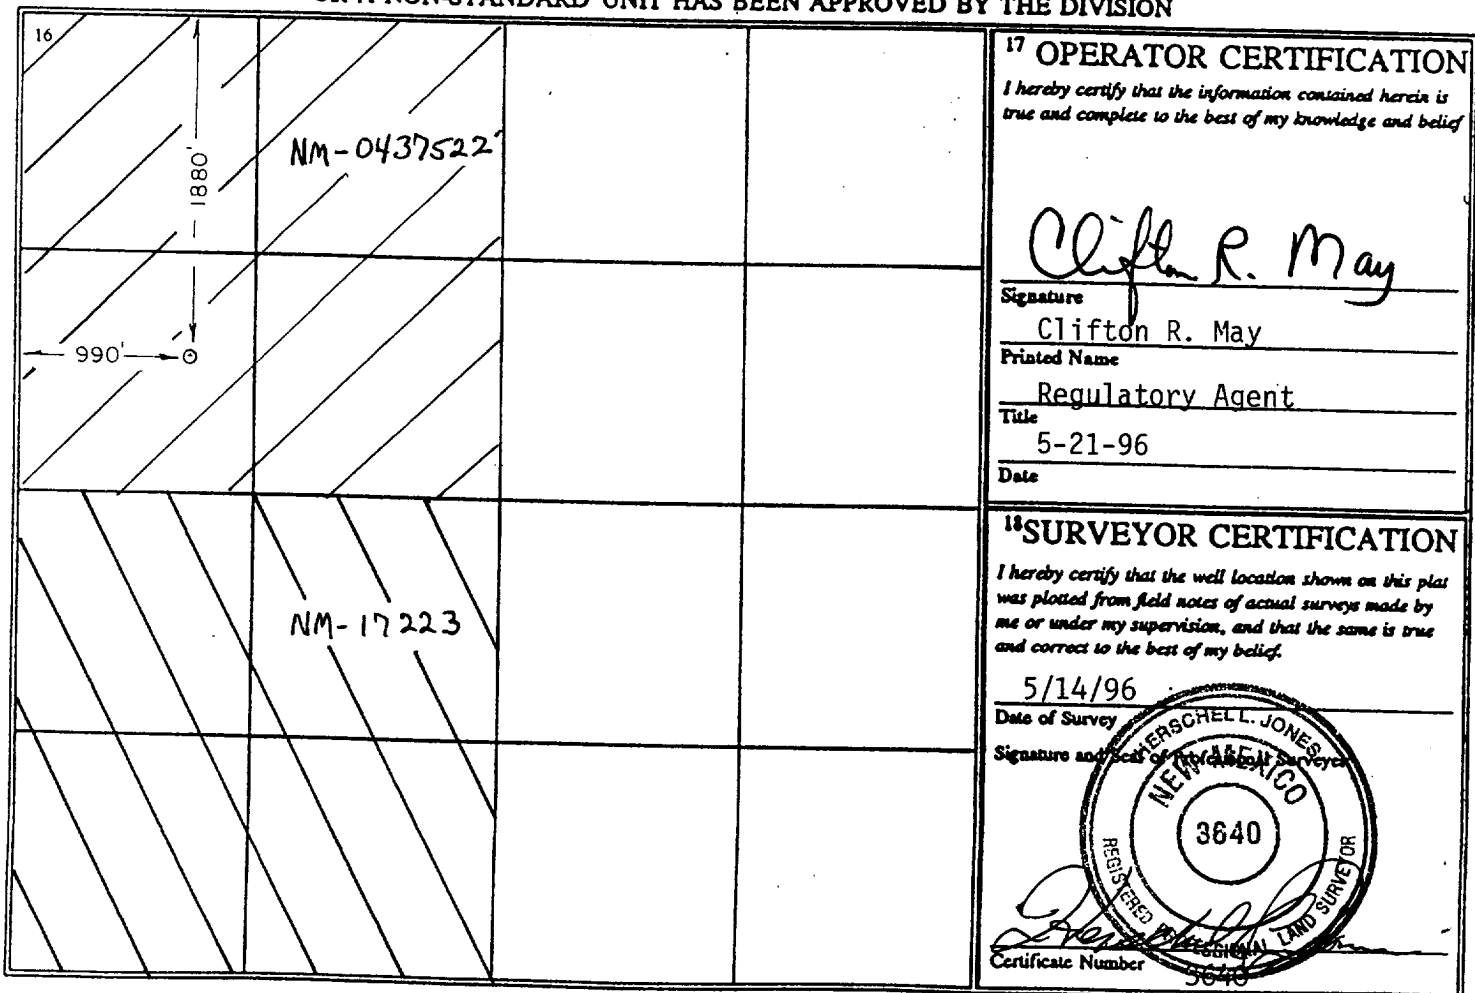 OR A NON-STANDARD UNIT HAS BEEN APPROVED BY THE DIVISION
16
1880'
990'
NM-0437522
NM-17223
17 OPERATOR CERTIFICATION
I hereby certify that the information contained herein is
true and complete to the best of my knowledge and belief
Clifton R. May
Signature
Clifton R. May
Printed Name
Regulatory Agent
Title
5-21-96
Date
18 SURVEYOR CERTIFICATION
I hereby certify that the well location shown on this plat
was plotted from field notes of actual surveys made by
me or under my supervision, and that the same is true
and correct to the best of my belief.
5/14/96
Date of Survey
Signature and Seal of Professional Surveyor
HERSCHEL L. JONES
NEW MEXICO
3640
REGISTERED PROFESSIONAL LAND SURVEYOR
Certificate Number
3640